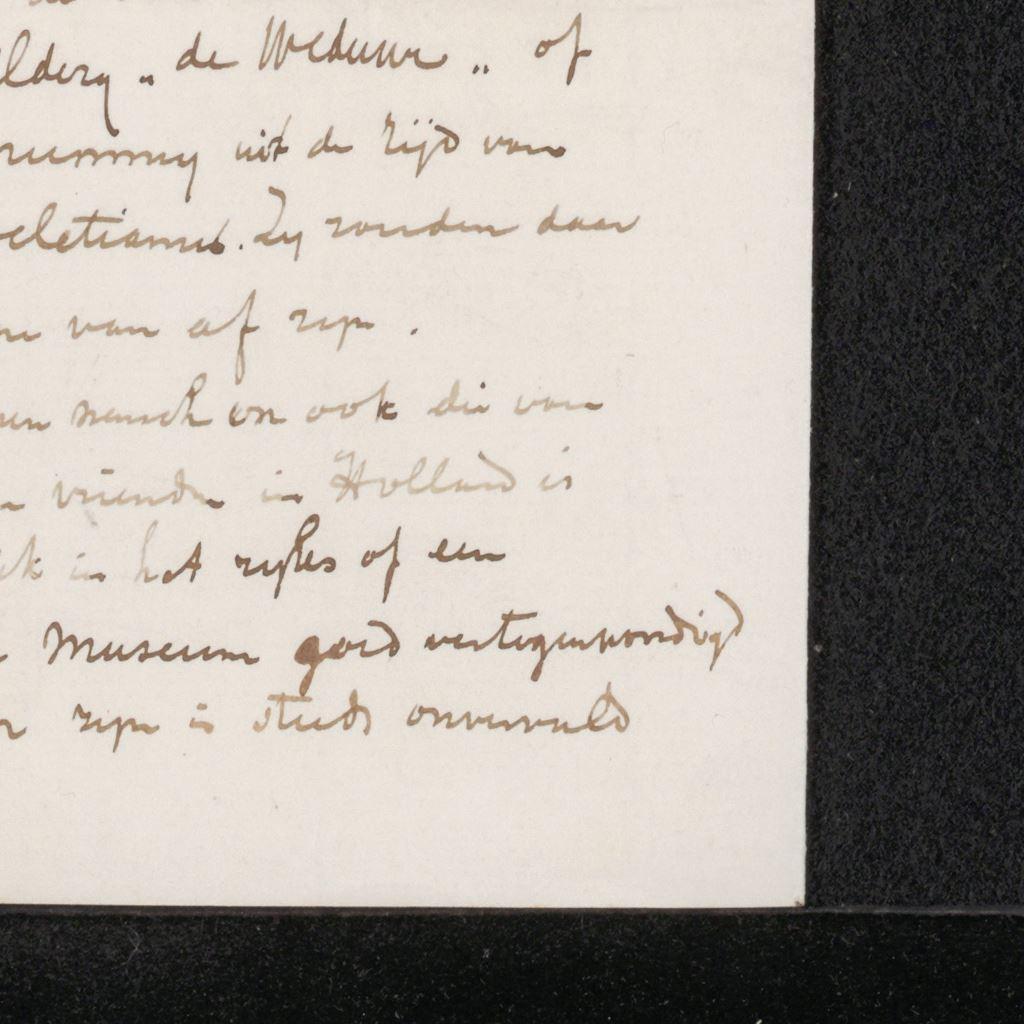 "de Weduwe" of
uit de tijd van
Zij zouden daar
van af zijn.
mensch en ook die van
vrienden in Holland is
in het rijks of een
Museum goed vertegenwoordigd
zijn is steeds onvervuld